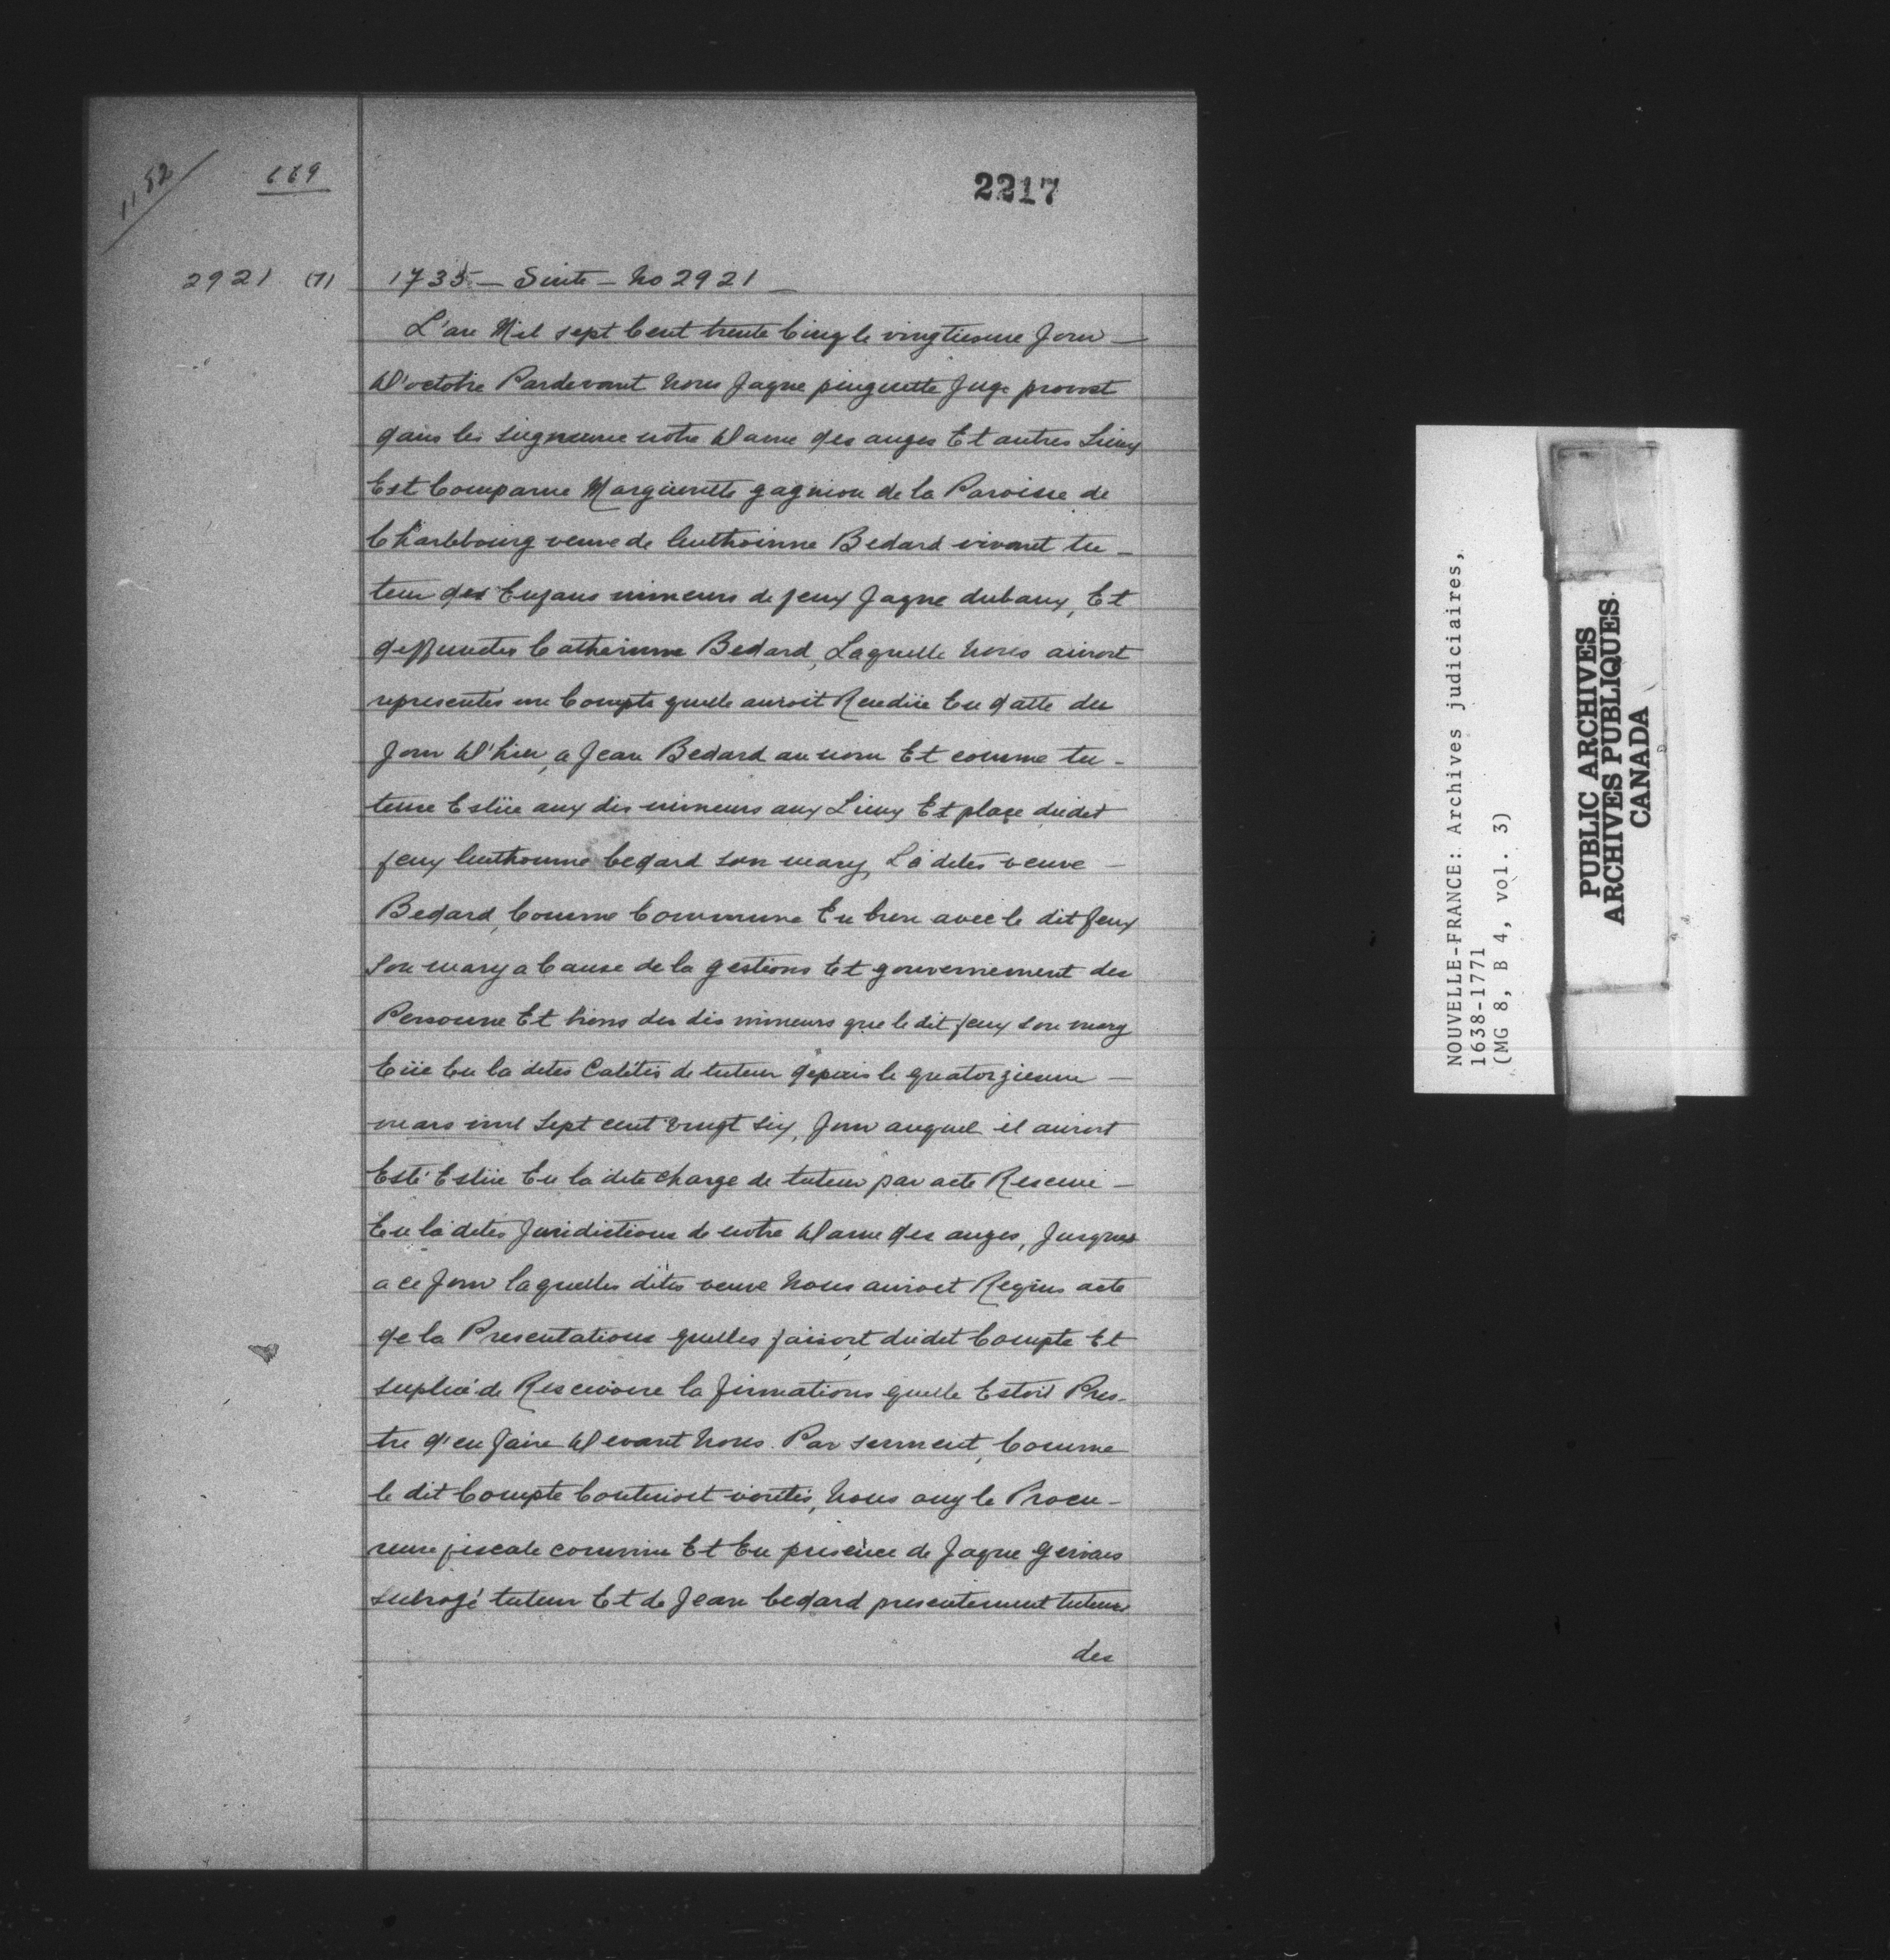 1182
669
2217
2921 (7)
1735 — Suite — No 2921 —
L'an Mil sept Cent trente Cinq le vingtiesme Jour —
D'octobre Pardevant Nous Jaque pinguette Juge provost
dans les signeurie notre Dame des anges Et autres Lieux
Est Comparue Margueritte gagnion de la Paroisse de
Charlebourg veuve de Enthoinne Bedard vivant tu-
teur des Enfans mineurs de feux Jaque dubaux, Et
deffuntes Catherinne Bedard, Laquelle Nous auroit
representés un Compte quelle auroit Rendüe En datte du
Jour D'hier, a Jean Bedard au nom Et comme tu-
teure Eslüe aux dis mineurs aux Lieux Et place dudit
feux Enthoinne bedard son mary, La dites veuve —
Bedard, Comme Commune En bien avec le dit feux
Son mary a Cause de la gestions Et gouvernement des
Personne Et biens des dis mineurs que le dit feux son mary
Eüe En la dites Calités de tuteur depuis le quatorziesme —
mars mil Sept cent vingt six, Jour auquel il auroit
Esté Eslüe En la dite charge de tuteur par acte Resceue —
En la dites Juridictions de notre Dame des anges, Jusques
a ce Jour laquelles dites veuve Nous auroit Requis acte
de la Presentations quelles faisoit dudit Compte Et
suplié de Rescevoire la firmations quelle Estoit Pres-
tre d'en faire Devant Nous. Par serment, Comme
le dit Compte Contenoit vérités, Nous ouy le Procu-
reure fiscale commis Et En presence de Jaque Gervais
subrogé tuteur Et de Jean bedard presentement tuteur
des
NOUVELLE-FRANCE: Archives judiciaires,
1638-1771
(MG 8, B 4, vol. 3)
PUBLIC ARCHIVES
ARCHIVES PUBLIQUES
CANADA